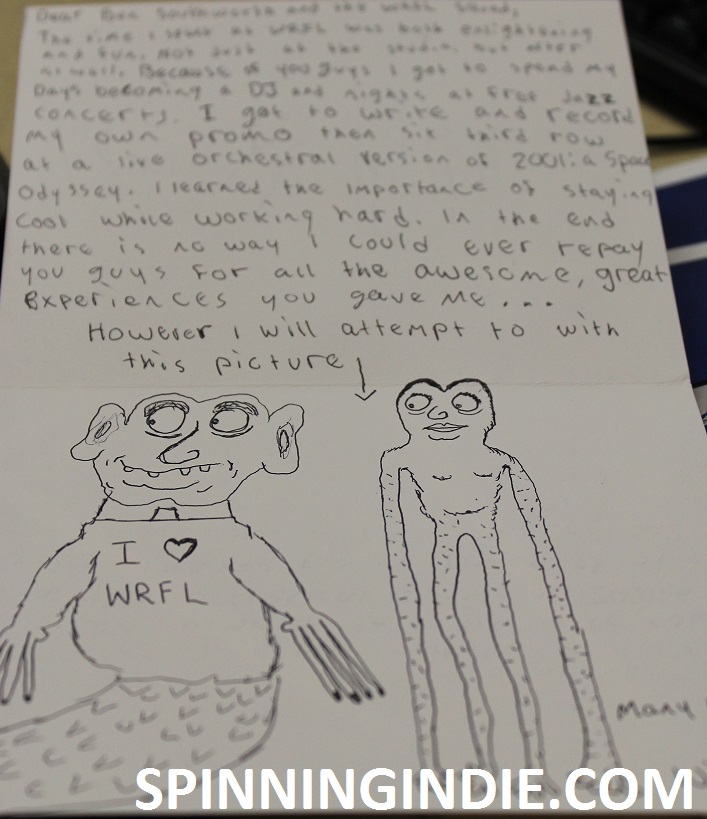 Dear Ben Southworth and the WRFL
The time I spent at WRFL was both enlightening
and fun. Not just at the studio, but after
as well. Because of you guys I got to spend my
Days becoming a DJ and nights at free Jazz
concerts. I got to write and record
my own promo then sit third row
at a live orchestral version of 2001: a Space
Odyssey. I learned the importance of staying
Cool while working hard. In the end
there is no way I could ever repay
you guys for all the awesome, great
Experiences you gave me...
However I will attempt to with
this picture
I ♥
WRFL
Many
SPINNINGINDIE.COM